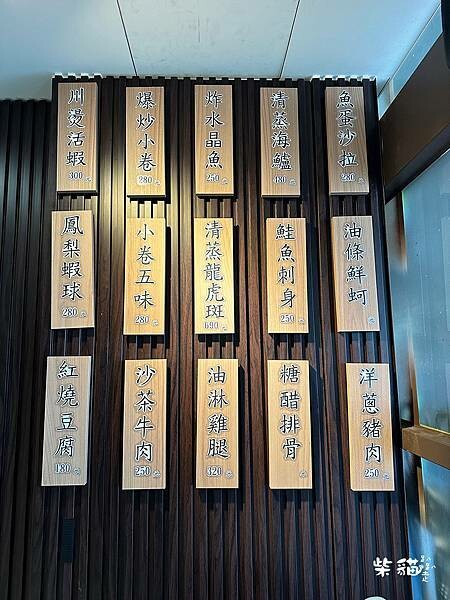 魚蛋沙拉
280元
清蒸海鱸
480元
炸水晶魚
250元
爆炒小卷
280元
川燙活蝦
300元
油條鮮蚵
鮭魚刺身
250元
清蒸龍虎斑
690元
小卷五味
280元
鳳梨蝦球
280元
洋蔥豬肉
250元
糖醋排骨
油淋雞腿
320元
沙茶牛肉
250元
紅燒豆腐
180元
柴貓